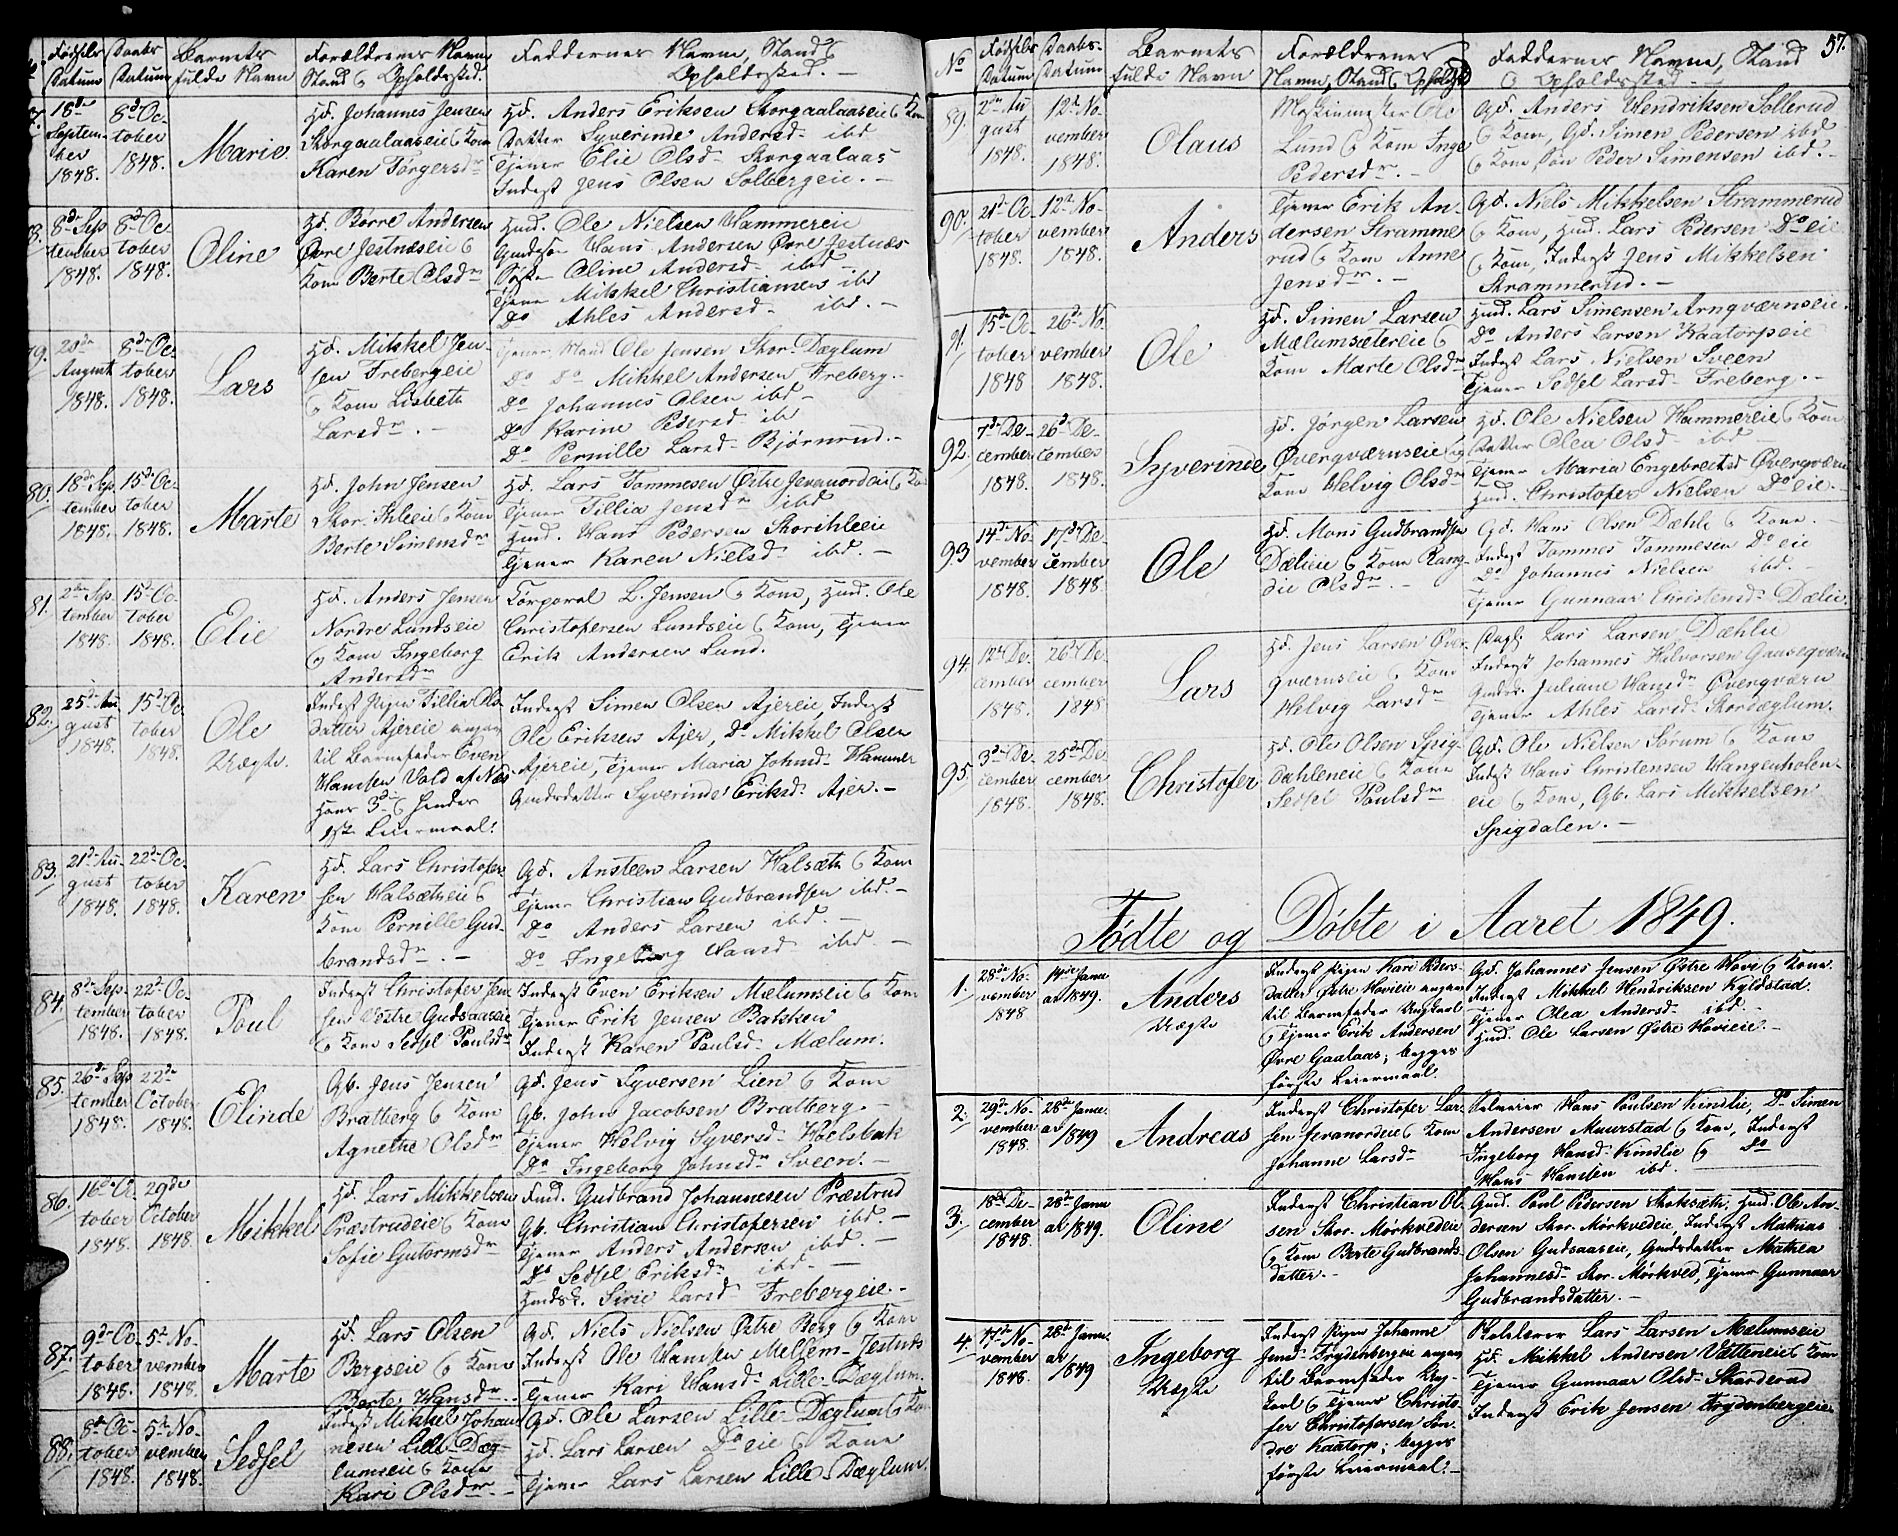 Fødsels Datum
Daabs Datum
Barnets fulde Navn
Forældrenes Navne Stand & Opholdssted.
Faddernes Navne, Stand & Opholdssted. —
18de September 1848.
8de October 1848.
Marie
Hd. Johannes Jensen
Skorgaalaaseie & Kone
Karen Törgersdr
Hd. Anders Eriksen Skorgaalaaseie & Kone
Datter Syverinde Andersd. ibd
Tjener Elie Olsd. Skorgaalaas
Inderst Jens Olsen Solbergeie. —
8de September 1848.
8de October 1848.
Oline
Hd. Børre Andersen
Øvre Jestnæseie &
Kone Berte Olsdr
Huusmd. Ole Nielsen Hammereie
Hans Andersen Øvre Jestnæs
Oline Andersd. ibd
Tjener Mikkel Christiansen ibd
Do Ahles Andersd. ibd. —
79.
20de August 1848.
8de October 1848.
Lars
Hd. Mikkel Jensen Frebergeie
& Kone Lisbeth
Larsdr. —
Ole Jensen Stor-Dæglum
Do Do Mikkel Andersen Freberg. —
Do Johannes Olsen ibd —
Do Karine Pedersd ibd
Do Pernille Larsd. Bjørnrud. —
80.
18de September 1848.
15de October 1848.
Marte
Hd. John Jensen
Skor. Ihleeie & Kone
Berte Simensdr
Hd. Lars Tommesen Østre Jevanordeie & Kone
Tjener Tillia Jensdr ibd
Huusmd. Hans Pedersen Skorihleeie
Tjener Karen Nielsd. ibd. —
81.
2den September 1848.
15de October 1848.
Elie
Hd. Anders Jensen
Nordre Lundseie
& Kone Ingeborg
Andersdr
Corporal L. Jensen & Kone, Huusmd. Ole
Christofersen Lundseie & Kone, Tjener
Erik Andersen Lund.
82.
25de August 1848.
15de October 1848.
Ole
Uægte.
Inderst Pigen Tillia Olsdatter Ajereie angav
til Barnefader Even
Hansen Vold af Næs
Hans 3de & hendes
1ste Leiermaal.
Inderst Simen Olsen Ajereie, Inderst
Ole Eriksen Ajer, Do Mikkel Olsen
Ajereie, Tjener Maria Johnsd. Hammer
Gaardsdatter Syverinde Eriksd. Ajer. —
83.
21de August 1848.
22de October 1848.
Karen
Hd. Lars Christofersen Halsætheie &
Kone Pernille Gudbrandsdr. —
Gd. Ansteen Larsen Halsæth & Kone
Tjener Christian Gudbrandsen ibd. —
Do Anders Larsen ibd. —
Do Ingeborg Hansd. ibd. —
84.
8de September 1848.
22de October 1848.
Poul
Inderst Christofer Jensen Vestre Gudsaaseie
& Kone Sedsel Poulsdr
Inderst Even Eriksen Mælumseie & Kone
Tjener Erik Jensen Bakken
Inderst Karen Poulsd. Mælum.
85.
26de September 1848.
22de October 1848.
Elinde
Gb. Jens Jensen
Bratberg & Kone
Agnethe Olsdr
Gd. Jens Syversen Lien & Kone
Gb. John Jacobsen Bratberg. —
Tjener Helvig Syversd. Hoelsbak
Do Ingeborg Johnsdr Sveen. —
86.
16de October 1848.
29de October 1848.
Mikkel
Hd. Lars Mikkelsen
Præstrudeie & Kone
Sofie Gutormsdr
Gudbrand Johannesen Præstrud
Gb. Christian Christofersen ibd. —
Tjener Anders Andersen ibd. —
Do Sedsel Eriksd. ibd. —
Sirie Larsd Frebergeie. —
87.
9de October 1848.
5te November 1848.
Marte
Hd. Lars Olsen
Bergseie & Kone
Berte Hansdr. —
Gd. Niels Nielsen Østre Berg & Kone
Inderst Ole Hansen Mellem-Jestnæs
Tjener Kari Hansd. Lille-Dæglum.
88.
8de October 1848.
5te November 1848.
Sedsel
Inderst Mikkel Johannesen Lille-Dæglumseie & Kone
Kari Olsdr. —
Gd. Ole Larsen Lille-Dæglum & Kone
Hd. Lars Larsen Do eie & Kone
Tjener Lars Larsen Lille-Dæglum.
57.
No
Fødsels Datum
Daabs-Datum
Barnets fulde Navn
Forældrenes Navne, Stand & Opholdsst
Faddernes Navne, Stand & Opholdssted —
89.
2den August 1848.
12te November 1848.
Olaus
Ole
Lund & Kone Inge
Pedersdr. —
Gd. Anders Hendriksen Sollerud
& Kone, Gd. Simen Pedersen ibd
& Kone Søn Peder Simensen ibd. —
90.
21de October 1848.
12te November 1848.
Anders
Tjener Erik Andersen Strammerud & Kone Anne
Jensdr. —
Gd. Niels Mikkelsen Strammerud
& Kone, Huusmd. Lars Pedersen Do eie
& Kone, Inderst Jens Mikkelsen
Strammerud. —
91.
15de October 1848
26de November 1848.
Ole
Hd. Simen Larsen
Mælumsætereie &
Kone Marte Olsdr
Huusmd. Lars Simensen Arnqværnseie.
Do Anders Larsen Kaatorpeie
Inderst Lars Nielsen Sveen
Tjener Sedsel Larsd. Freberg. —
92.
7de December 1848.
26de December 1848.
Syverinde
Hd. Jørgen Larsen
Øverqværnseie &
Kone Helvig Olsdr
Hd. Ole Nielsen Hammereie & Kone
Datter Olea Olsd. ibd —
Tjener Maria Engebretsd Øverqværn
Huusmd. Christofer Nielsen Do eie. —
93
14de November 1848.
17de December 1848.
Ole
Hd. Mons Gudbrandsen
Dælieie & Kone Rangdie Olsdr. —
Gd. Hans Olsen Dæhli & Kone. —
Inderst Tommes Tommesen Do eie
Do Johannes Nielsen ibd. —
Tjener Gunnaar Christensd. Dælie.
94.
12te December 1848.
26de December 1848
Lars
Hd. Jens Larsen Øverqværnseie & Kone
Helvig Larsdr
Lars Larsen Dæhlie
Inderst Johannes Halvorsen Gaaseqværn
Juliane Hansdr Øverqværn
Tjener Ahles Larsd. Skordæglum.
95.
3de December 1848.
25de December 1848.
Christofer
Hd. Ole Olsen Spigdahleneie & Kone
Sedsel Poulsdr
Gd. Ole Nielsen Sørum & Kone
Inderst Hans Christensen Hangenholeneie & Kone, Gb. Lars Mikkelsen
Spigdalen. —
Fødte og Døbte i Aaret 1849.
1.
28de November 1848
14de Januar 1849.
Anders
Uægte
Inderst Pigen Kari Pedersdatter Østre Hovieie angav
til Barnefader Ungkarl
& Tjener Erik Andersen
Øvre Gaalaas; begges
første Leiermaal.
Gd. Johannes Jensen Østre Hove & Kone.
Inderst Mikkel Hendriksen Kyldstad.
Tjener Olea Andersd. ibd. —
Huusmd. Ole Larsen Østre Hovieie. —
2.
29de November 1848.
28de Januar 1849
Andreas
Inderst Christofer Larsen Jeranordeie & Kone
Johanne Larsdr
Hans Poulsen Kindlie, Do Simen
Andersen Muurstad & Kone, Inderst
Ingeborg Hansd. Kindlie & Do
Hans Hansen ibd.
3.
18de December 1848.
28de Januar 1849.
Oline
Inderst Christian Olsen Skor-Mørkvedeie
& Kone Berte Gudbrandsdatter. —
Poul Pedersen Stoksæth, Huusmd. Ole Andersen Skor-Mørkvedeie, Inderst Mathias
Olsen Gudsaaseie, Gaardsdatter Mathea
Johannesdr Skor-Mørkved, Tjener Gunnaar
Gudbrandsdatter. —
4.
17de November 1848.
28de Januar 1849
Ingeborg
Uægte
Inderst Pigen Johanne
Jensd. Frydenbergeie angav
til Barnefader Ungkarl & Tjener Christofer Christofersen Søndre Kaatorp; begges
første Leiermaal. —
Lars Larsen Mælumseie
Hd. Mikkel Andersen Vætteneie & Kone
Tjener Gunnaar Olsd. Skarderud
Inderst Erik Jensen Frydenbergeie